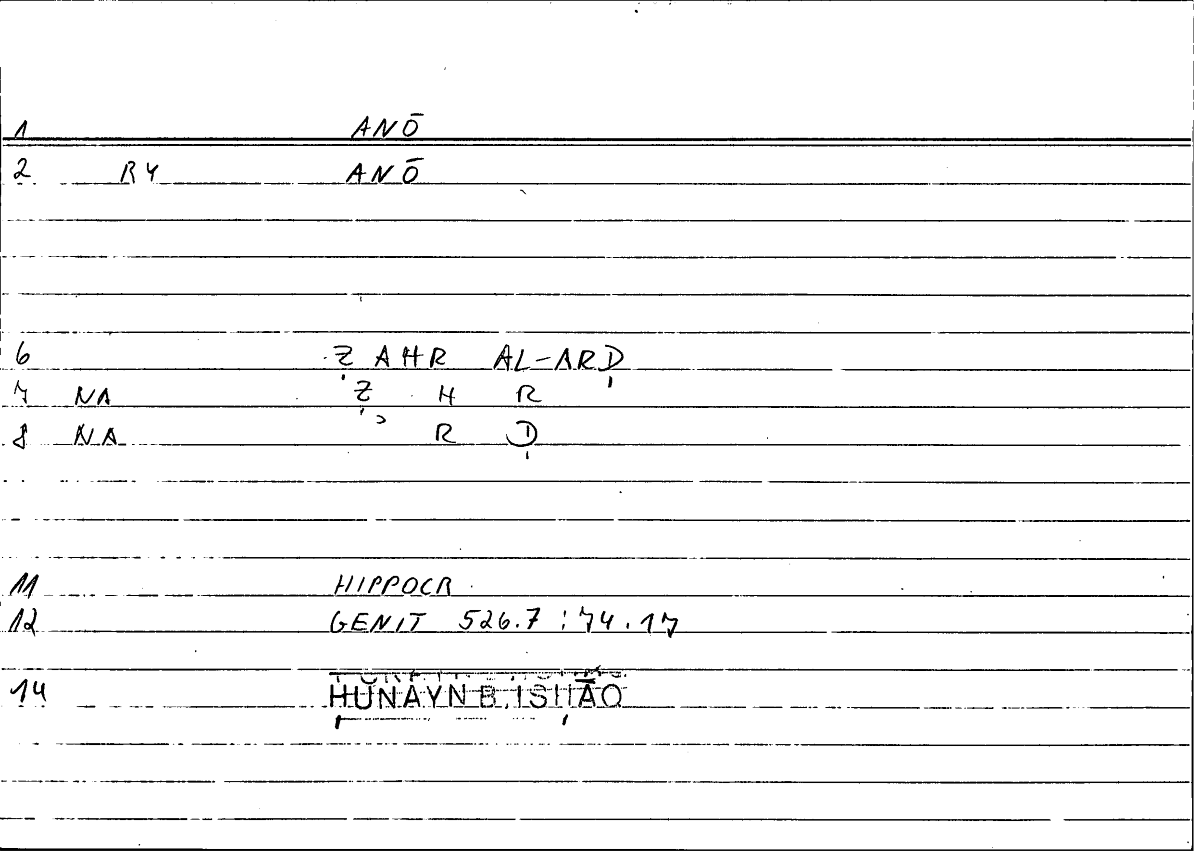 1 ANŌ
2 RY ANŌ
6 ẒAHR AL-ARḌ
7 NA Ẓ H R
8 NA ʾ R Ḍ
11 HIPPOCR
12 GENIT 526.7 : 74.17
14 ḤUNAYN B. ISḤĀQ